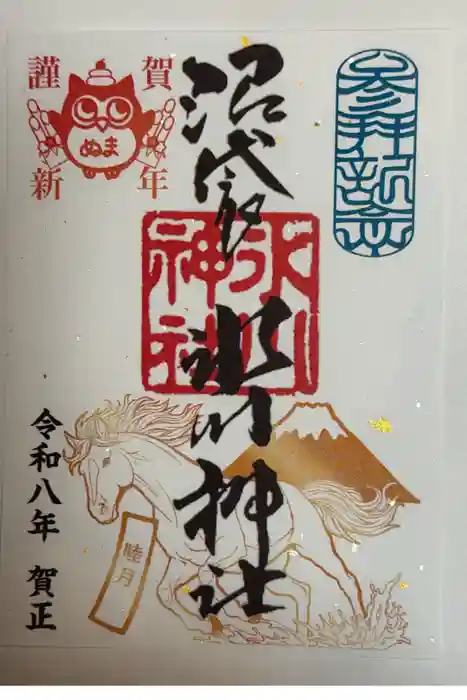 参拝記念
沼袋 氷川神社
氷川
神社
謹賀
新年
ぬま
睦月
令和八年 賀正